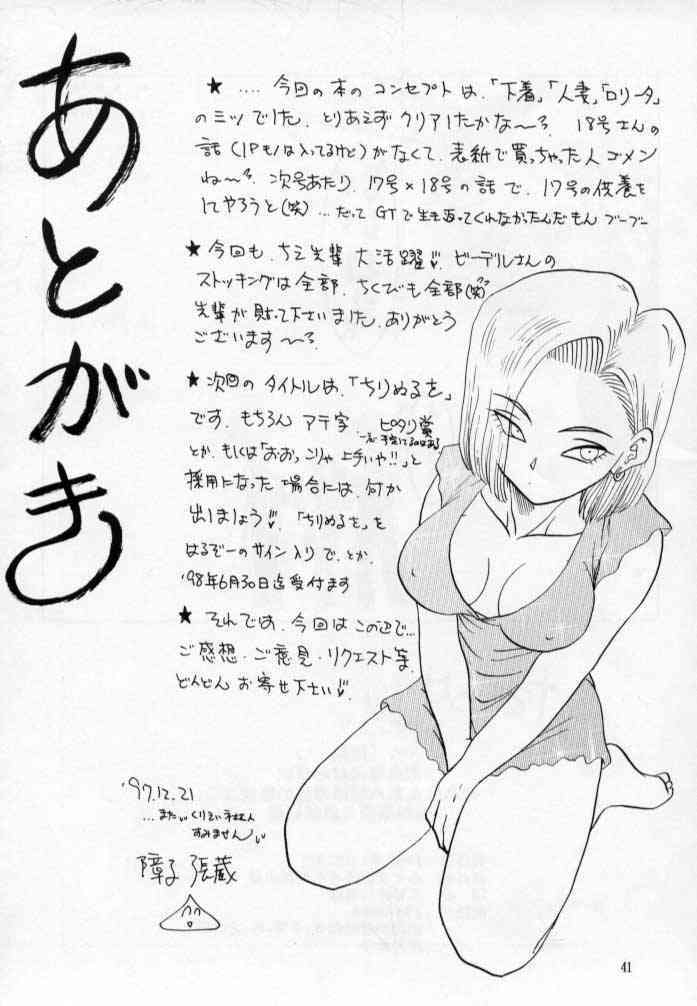 あとがき
★ ‥‥ 今回の本のコンセプトは、「下着」、「人妻」、「ロリータ」
のミツでした。とりあえずクリアしたかな〜?。18号さんの
話(1Pモノは入ってるけど)がなくて、表紙で買っちゃった人ゴメン
ね〜?。次号あたり、17号×18号の話で、17号の供養を
してやろうと(笑)…だって GTで生き返ってくれなかったんだもん ブーブー
★ 今回も、ちえ先輩 大活躍。ビーデルさんの
ストッキングは全部、ちくびも全部(笑)
先輩が貼って下さいました。ありがとう
ございます 〜
★ 次回のタイトルは、「ちりぬるを」
です。もちろん アテ字、ピタリ賞
とか、もしくは「おおっこりゃ上手いや!!」と
採用になった場合には、何か
出しましょう。「ちりぬるを」を
はるぞーのサイン入りで、とか、
'98年6月30日迄受付ます
★ それでは、今回はこの辺で…
ご感想・ご意見・リクエスト等
どんどん お寄せ下さい
'97.12.21
…また
すみません
障子 張蔵
41